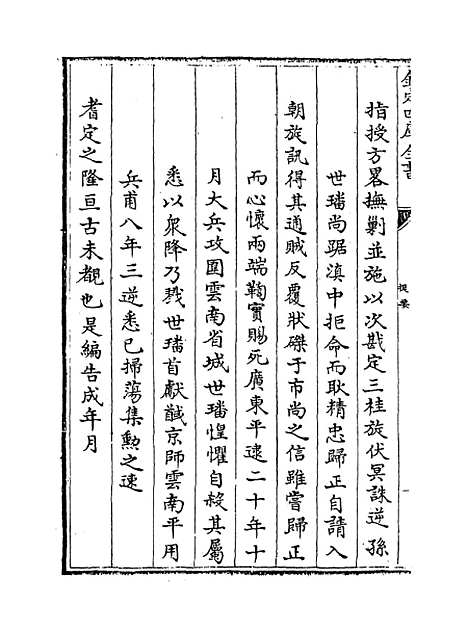 欽定四庫全書
提要
指授方畧撫剿並施以次戡定三桂旋伏冥誅逆孫
世璠尚踞滇中拒命而耿精忠歸正自請入
朝旋訊得其通賊反覆狀磔于市尚之信雖嘗歸正
而心懷兩端鞫實賜死廣東平逮二十年十
月大兵攻圍雲南省城世璠惶懼自殺其屬
悉以衆降乃戮世璠首獻馘京師雲南平用
兵甫八年三逆悉已掃蕩集勲之速
耆定之隆亘古未觀也是編告成年月